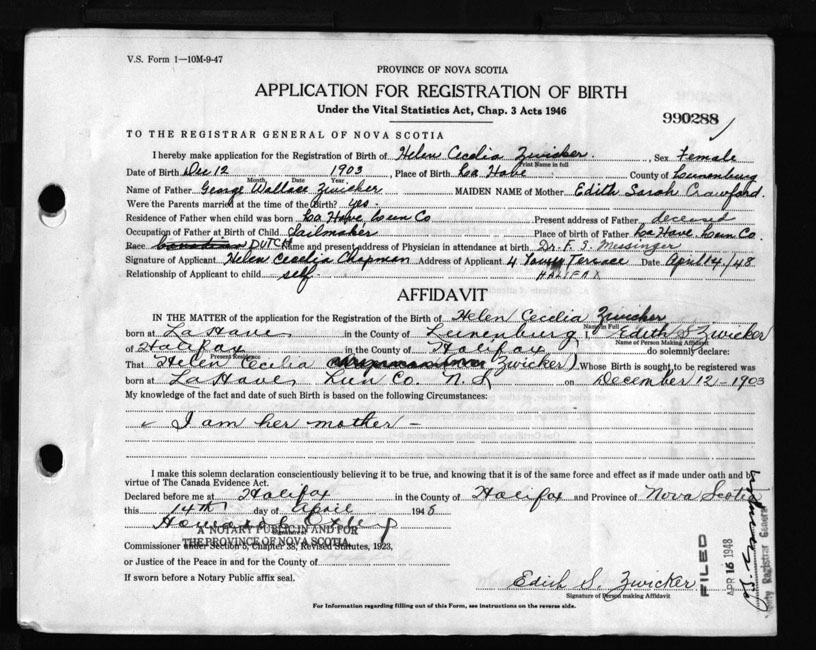 V.S. Form 1—10M-9-47
PROVINCE OF NOVA SCOTIA
APPLICATION FOR REGISTRATION OF BIRTH
Under the Vital Statistics Act, Chap. 3 Acts 1946
990288
TO THE REGISTRAR GENERAL OF NOVA SCOTIA
I hereby make application for the Registration of Birth of Helen Cecelia Zwicker, Sex Female
Print Name in full
Date of Birth Dec 12 1903, Place of Birth La Have County of Lunenburg
Month, Date Year,
Name of Father George Wallace Zwicker MAIDEN NAME of Mother Edith Sarah Crawford.
Were the Parents married at the time of the Birth? yes.
Residence of Father when child was born La Have Lun Co Present address of Father deceased
Occupation of Father at Birth of Child Sailmaker Place of birth of Father La Have Lun Co.
Race DUTCH Name and present address of Physician in attendance at birth Dr. F. S. Messinger
Signature of Applicant Helen Cecelia Chapman Address of Applicant 4 Terrace Date April 14/48
Relationship of Applicant to child self. HALIFAX
AFFIDAVIT
IN THE MATTER of the application for the Registration of Birth of Helen Cecilia Zwicker
Name in Full
born at La Have in the County of Lunenburg I, Edith S Zwicker
Name of Person Making Affidavit
of Halifax in the County of Halifax do solemnly declare:
Present Residence
That Helen Cecilia Zwicker) Whose Birth is sought to be registered was
born at La Have Lun Co. N.S on December 12 - 1903
My knowledge of the fact and date of such Birth is based on the following Circumstances:
I am her mother -
I make this solemn declaration conscientiously believing it to be true, and knowing that it is of the same force and effect as if made under oath and by
virtue of The Canada Evidence Act.
Declared before me at Halifax in the County of Halifax and Province of Nova Scotia
this 14th day of April 1948
A NOTARY PUBLIC IN AND FOR
THE PROVINCE OF NOVA SCOTIA
Commissioner under Section 5, Chapter 38, Revised Statutes, 1923,
or Justice of the Peace in and for
If sworn before a Notary Public affix seal.
Edith S. Zwicker
Signature of Person making Affidavit
FILED
APR 16 1948
Deputy Registrar General
For Information regarding filling out of this Form, see instructions on the reverse side.